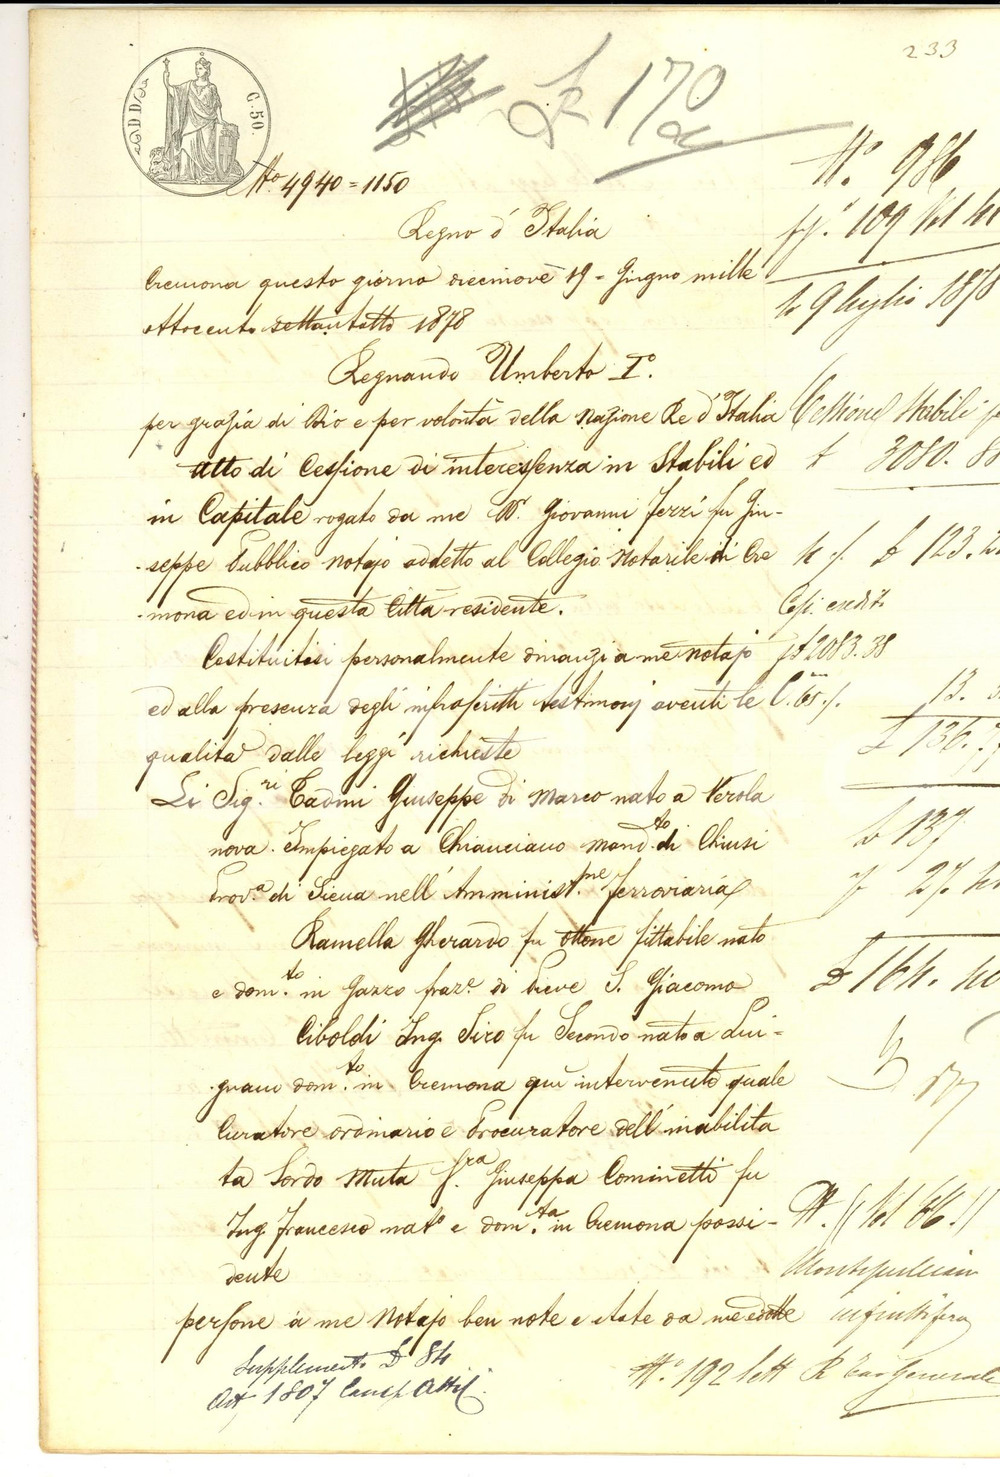 233
£ 170
C. 50.
N.° 4940 = 1150
N.° 986
Regno d'Italia
Cremona questo giorno diecinove 19 = Giugno mille
ottocento settantotto 1878
li 9 luglio 1878
Regnando Umberto I°.
per grazia di Dio e per volontà della Nazione Re d'Italia
Cessione Stabili
£ 3080.
Atto di Cessione di interessenza in Stabili ed
in Capitale rogato da me D.r Giovanni Fezzi fu Giu-
seppe Pubblico Notajo addetto al Collegio Notarile di Cre
£ 123.
-mona ed in questa Città residente.
Cap. crediti
Costituitisi personalmente dinanzi a me Notajo
£ 2083.38
ed alla presenza degli infrascritti testimonj aventi le
13.
qualità dalle leggi richieste
£ 136.
Li Sig.ri Tadini Giuseppe di Marco nato a Verola
nova. Impiegato a Chianciano Mand.to di Chiusi
£ 137
Prov.a di Siena nell'Amminist.ne Ferroviaria
27.
Ramella Gherardo fu Ottone fittabile nato
e dom.to in Gazzo fraz.e di Pieve S. Giacomo
£ 164. 40
Ciboldi Ing. Siro fu Secondo nato a Lui-
gnano dom.to in Cremona qui intervenuto quale
Curatore ordinario e Procuratore dell'inabilita
ta Sordo Muta S.ra Giuseppa Cominetti fu
Ing. Francesco nat.a e dom.ta in Cremona possi-
dente
persone a me Notajo ben note e state da me edotte
Supplemento £ 84
Art. 1807 Camp. Atti
N.° 192